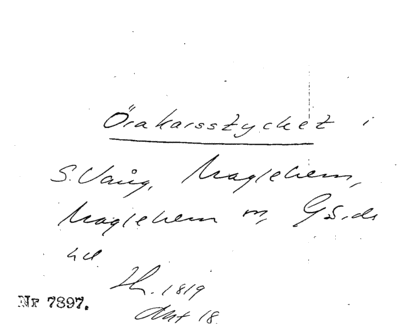 Örakarsstycket i
S. Vång, Maglehem,
Maglehem sn, Gärds
hd
Lh. 1819
Akt 18
Nr 7897.